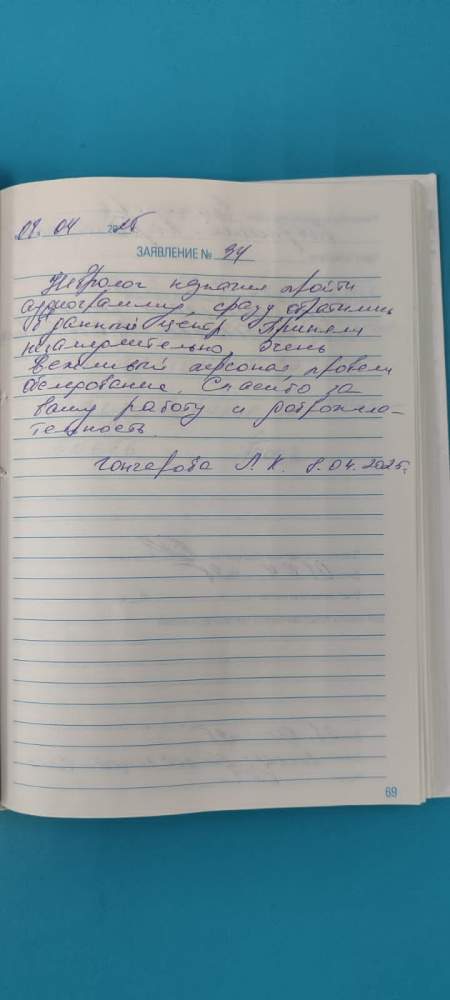 08. 04 2025
ЗАЯВЛЕНИЕ № 34
Невролог назначил пройти
аудиограммму, сразу обратились
в данный центр. Приняли
незамедлительно. Очень
вежливый персонал, провели
обследование. Спасибо за
вашу работу и доброжела-
тельность.
Гончарова Л.К. 8.04.2025г.
69